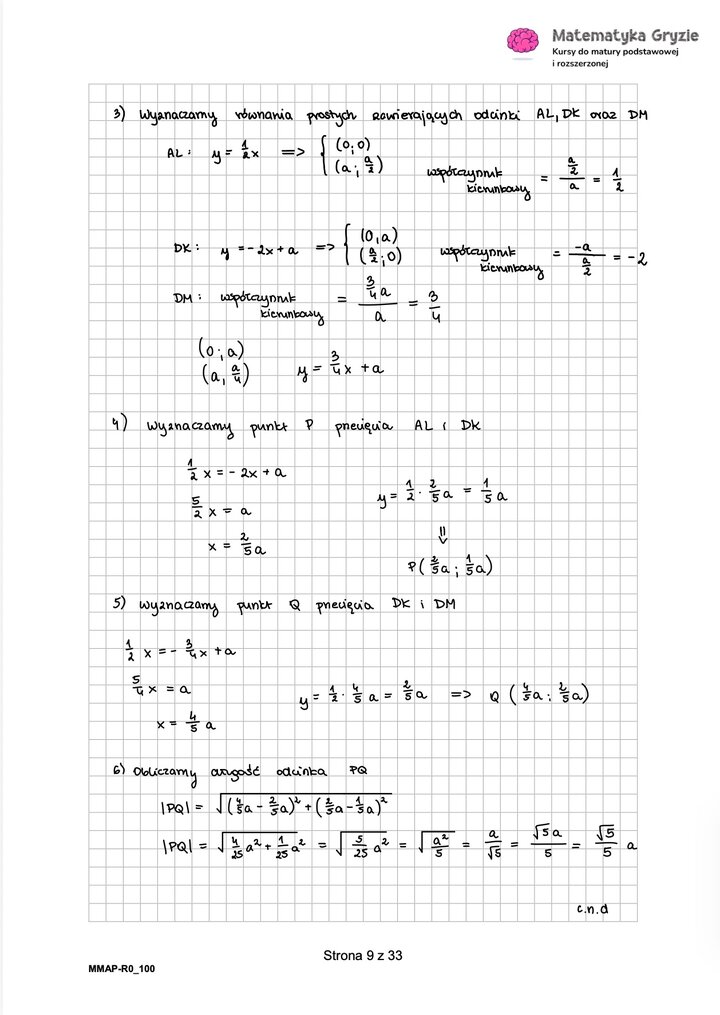 Matematyka Gryzie
Kursy do matury podstawowej
i rozszerzonej
3) Wyznaczamy równania prostych zawierających odcinki AL, DK oraz DM
AL: y = 1/2 x => { (0;0) (a; a/2) współczynnik kierunkowy = (a/2)/a = 1/2
DK: y = -2x + a => { (0,a) (a/2;0) współczynnik kierunkowy = -a/(a/2) = -2
DM: współczynnik kierunkowy = (3/4 a)/a = 3/4
(0;a)
(a, a/4) y = 3/4 x + a
4) Wyznaczamy punkt P przecięcia AL i DK
1/2 x = -2x + a
5/2 x = a y = 1/2 · 2/5 a = 1/5 a
x = 2/5 a ⇓
P(2/5 a; 1/5 a)
5) Wyznaczamy punkt Q przecięcia DK i DM
1/2 x = - 3/4 x + a
5/4 x = a y = 1/2 · 4/5 a = 2/5 a => Q (4/5 a; 2/5 a)
x = 4/5 a
6) Obliczamy długość odcinka PQ
|PQ| = √((4/5 a - 2/5 a)² + (2/5 a - 1/5 a)²)
|PQ| = √(4/25 a² + 1/25 a²) = √(5/25 a²) = √(a²/5) = a/√5 = √5 a/5 = √5/5 a
c.n.d
Strona 9 z 33
MMAP-R0_100